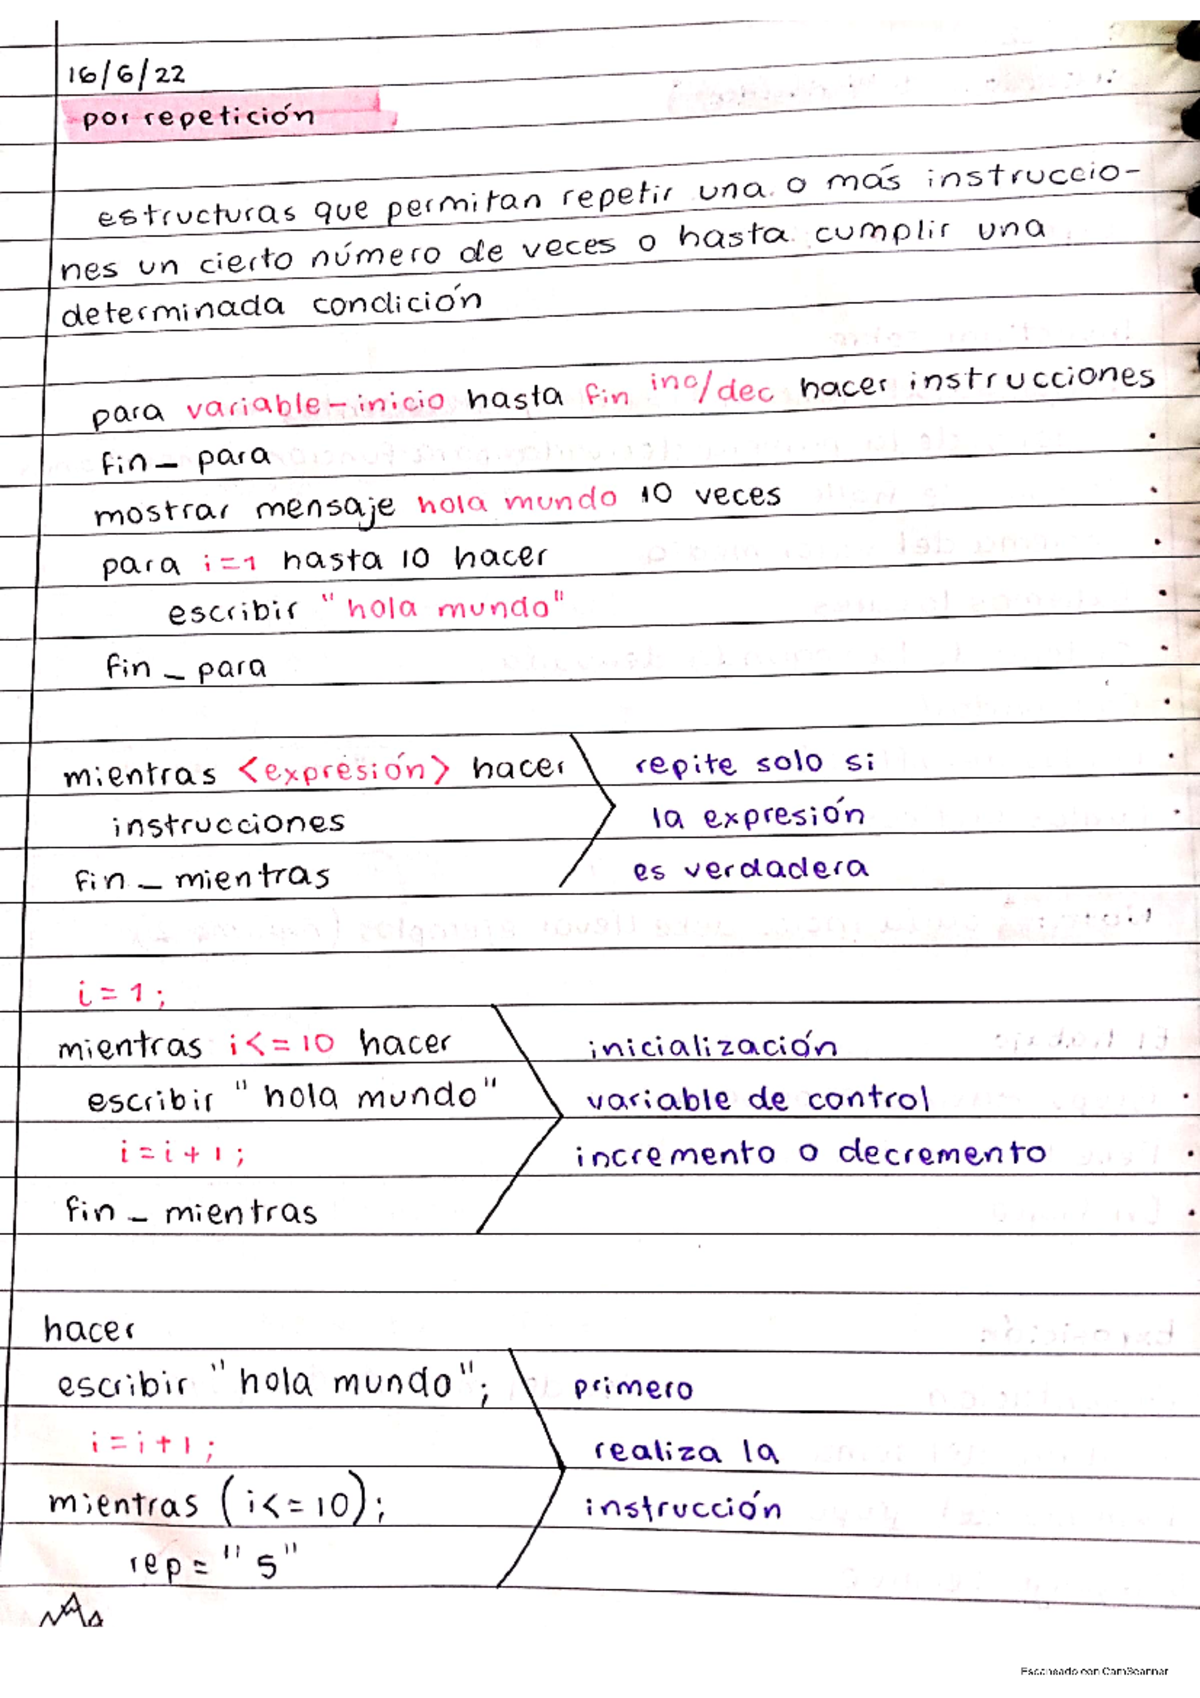 16/6/22
por repetición
estructuras que permitan repetir una o más instruccio-
nes un cierto número de veces o hasta cumplir una
determinada condición
para variable-inicio hasta fin inc/dec hacer instrucciones
fin_para
mostrar mensaje hola mundo 10 veces
para i=1 hasta 10 hacer
escribir "hola mundo"
fin_para
mientras <expresión> hacer
instrucciones
fin_mientras
repite solo si
la expresión
es verdadera
i=1;
mientras i<=10 hacer
escribir "hola mundo"
i=i+1;
fin_mientras
inicialización
variable de control
incremento o decremento
hacer
escribir "hola mundo";
i=i+1;
mientras (i<=10);
rep="5"
primero
realiza la
instrucción
Escaneado con CamScanner